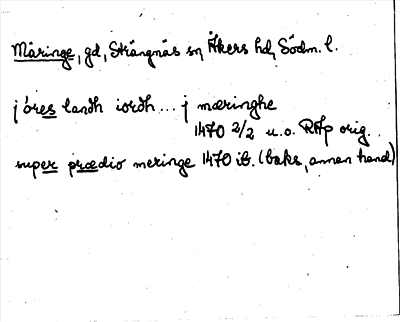 Märinge, gd, Strängnäs sn, Åkers hd, Södm. l.
j óres landh iordh... j mæringhe
1470 2/2 u.o. RAp orig.
super prædio meringe 1470 ib. (baks., annan hand)